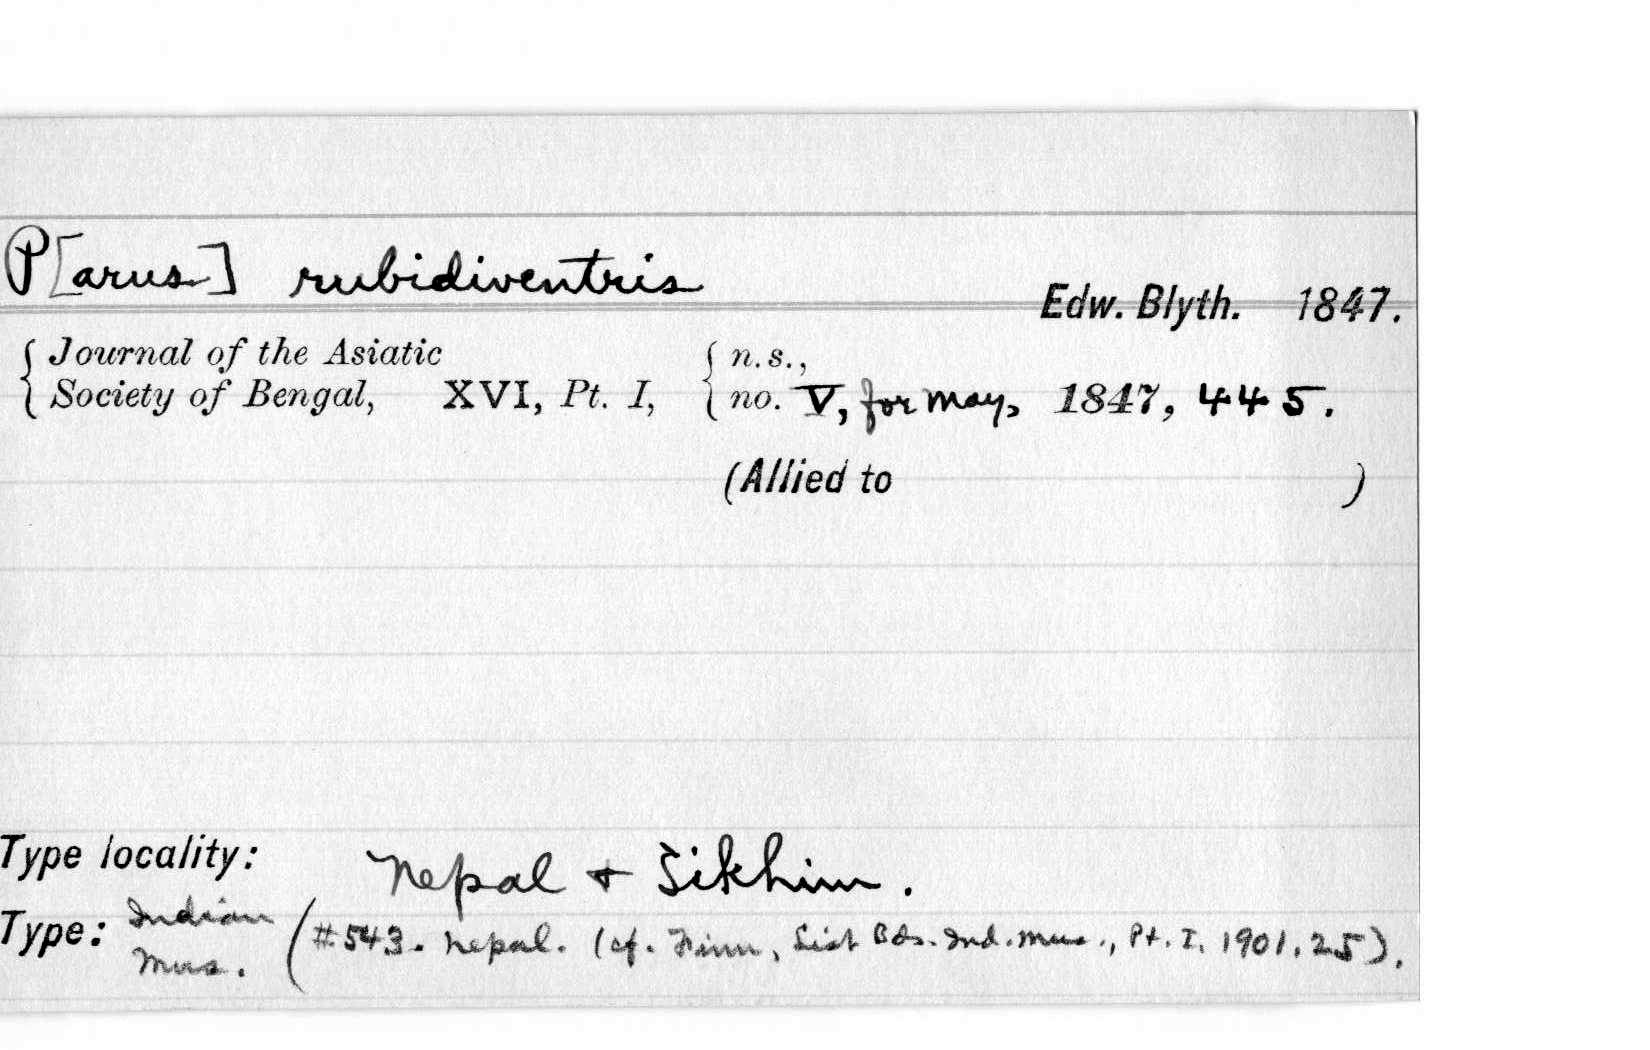 P[arus] rubidiventris
Edw. Blyth. 1847.
Journal of the Asiatic { n.s.,
Society of Bengal, XVI, Pt. I, { no. V, for May, 1847, 445.
(Allied to )
Type locality: Nepal + Sikhim.
Type: Indian Mus. (#543. Nepal. (cf. Finn, List Bds. Ind. Mus., Pt. I, 1901, 25).